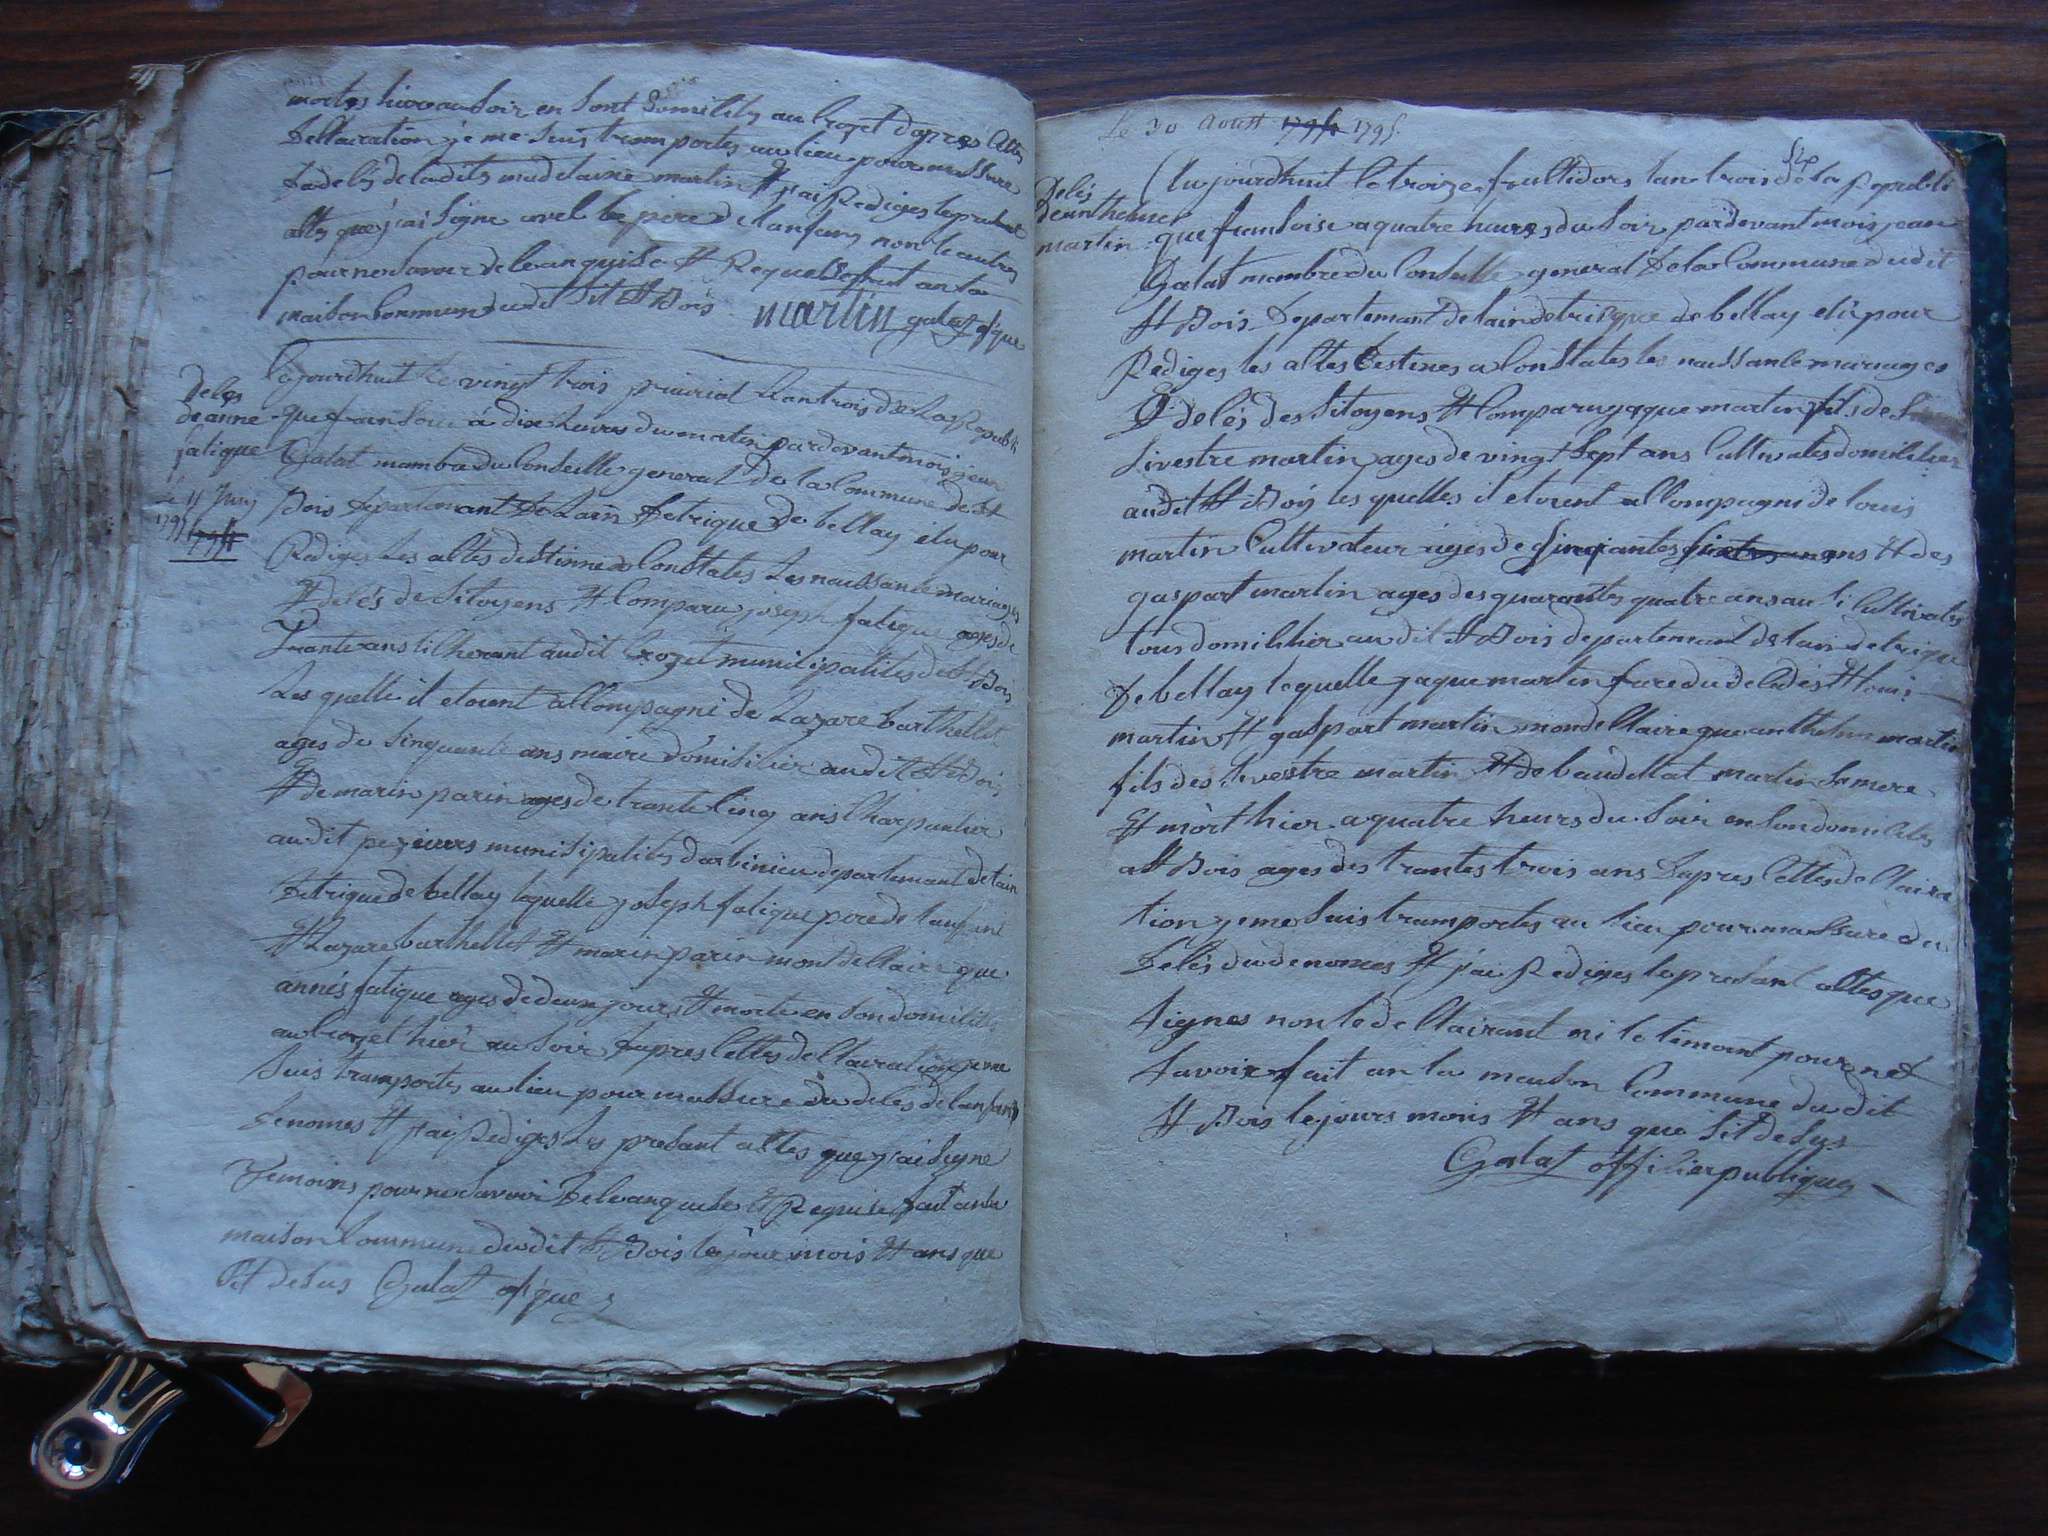 mortes hiere au soir en sont domiciles au Crozet dapres cettes
dellaration je me suis tramportes au lieu pour massure
du delés de la dits madelaine martin Et j'ai Rediges le presant
altes que j'ai signe avel le pere de lanfans non le autres
pour ne savoir de le anquise Et Requesse fait an la
maison Commune du dit St Bois martin galat of que
Cejourdhuit le vingt trois prairial Lan trois de La Republi
delés
de anne
fatique
que fransoise à dix heures du matin par devant mois jean
Galat mambre du Conseille general de la Commune de St
le 11 Juin
1795
Bois departemant de Lain detrique de bellay élu pour
Rediges Les altes destinne a Constates Les naissanse mariages
Et delés de sitoyens Et Comparu joseph fatique ages de
trante ans audit Crozet munisipalités de St Bois
Les quelle il etoient allompagné de Lazare barthellet
ages de sinquante ans maire domisilier audit St Bois
Et de marin parin ages de trante sinq ans Charpantier
audit pezieurs munisipalites darbinieu departemant de Lain
detrique de bellay lequelle joseph fatique pere de lanfant
Et Lazare barthellet Et marin parin mont dellaire que
annés fatique ages de deux jours Et morte en son domisile
au Crozet hier au soir dapres settes dellaration je me
suis tramportes au lieu pour massure du delés de lanfans
denomes Et j'ai Rediges Les presant altes que j'ai signe
temoins pour ne savoir de le anquise Et Requise fait an la
maison Commune du dit St Bois le jour mois Et ans que
sit desus Galat of que
Le 30 Aoust 1795
Aujourdhuit le treize fruttidors lan trois de la Republi
Delés
de anthelme
martin
que fransoise a quatre heures du soir par devant mois jean
Galat mambre du Conseille general de la Commune dudit
St Bois departemant de lain detrique de bellay elu pour
Rediges les altes destines a Constates les naissanse mariages
Et delés des sitoyens Et Comparu jaque martin fils de
sivestre martin ages de vingt sept ans Cultivates domisilier
audit St Bois les quelles il etoient allompagné de louis
martin Cultivateur ages de sinqantes ans Et des
gaspart martin ages des quarantes quatre ans au si Cultivates
tous domisilier audit St Bois departemant de lain detrique
de bellay lequelle jaque martin frere du deledés Et louis
martin Et gaspart martin mon dellaire que anthelme martin
fils des sivestre martin Et de baudellat martin se mere
Et mort hier a quatre heurs du soir en son domisiles
a St Bois ages des trantes trois ans dapres settes dellaira
tion je me suis tramportes au lieu pour massure du
delés du denomes Et j'ai Rediges le presant altes que
signes non le dellairant ni le temoint pour net
savoir fait an la maison Commune du dit
St Bois le jours mois Et ans que sit desus
Galat offisier publique